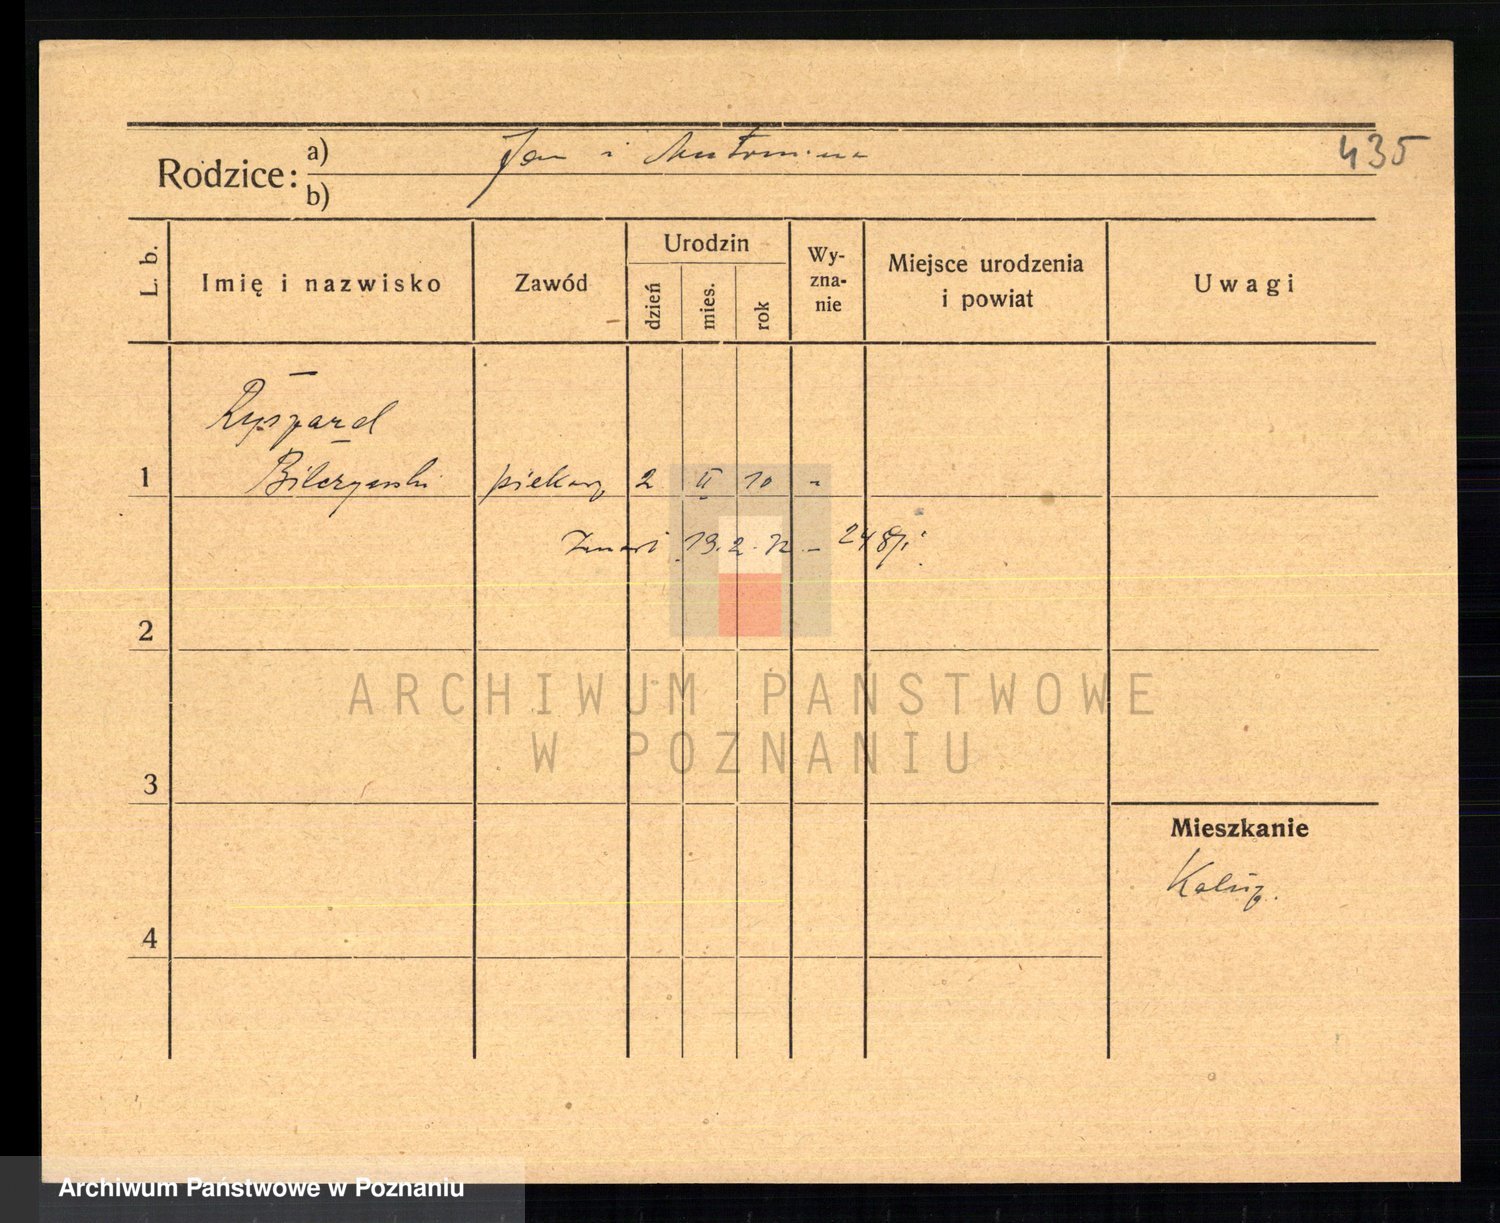 435
Rodzice: a) Jan i Antonina
b)
L. b.
Imię i nazwisko
Zawód
Urodzin
dzień
mies.
rok
Wy-
zna-
nie
Miejsce urodzenia
i powiat
Uwagi
Ryszard
1 Bilczewski piekarz 2 II 10 -
Zmarł 13.2.72 -
2
3
4
Mieszkanie
ARCHIWUM PAŃSTWOWE
W POZNANIU
Archiwum Państwowe w Poznaniu